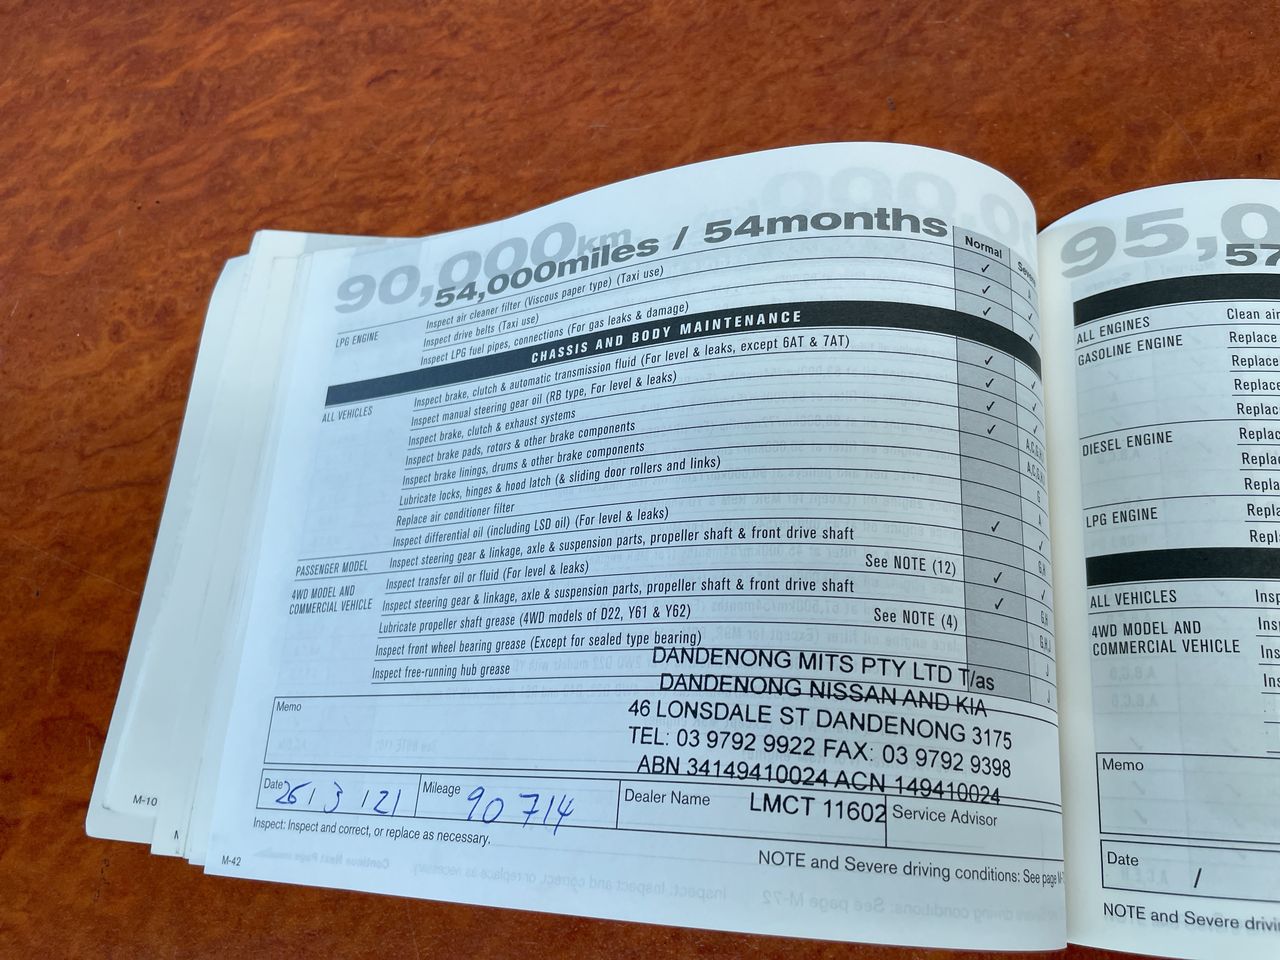 90,000km
54,000miles / 54months
Normal
LPG ENGINE
Inspect air cleaner filter (Viscous paper type) (Taxi use)
Inspect drive belts (Taxi use)
Inspect LPG fuel pipes, connections (For gas leaks & damage)
CHASSIS AND BODY MAINTENANCE
ALL VEHICLES
Inspect brake, clutch & automatic transmission fluid (For level & leaks, except 6AT & 7AT)
Inspect manual steering gear oil (RB type, For level & leaks)
Inspect brake, clutch & exhaust systems
Inspect brake pads, rotors & other brake components
Inspect brake linings, drums & other brake components
Lubricate locks, hinges & hood latch (& sliding door rollers and links)
Replace air conditioner filter
Inspect differential oil (including LSD oil) (For level & leaks)
PASSENGER MODEL
Inspect steering gear & linkage, axle & suspension parts, propeller shaft & front drive shaft
4WD MODEL AND
COMMERCIAL VEHICLE
Inspect transfer oil or fluid (For level & leaks) See NOTE (12)
Inspect steering gear & linkage, axle & suspension parts, propeller shaft & front drive shaft
Lubricate propeller shaft grease (4WD models of D22, Y61 & Y62) See NOTE (4)
Inspect front wheel bearing grease (Except for sealed type bearing)
Inspect free-running hub grease
DANDENONG MITS PTY LTD T/as
DANDENONG NISSAN AND KIA
46 LONSDALE ST DANDENONG 3175
TEL: 03 9792 9922 FAX: 03 9792 9398
ABN 34149410024 ACN 149410024
LMCT 11602
Memo
Date 26/3/21
Mileage 90714
Dealer Name
Service Advisor
Inspect: Inspect and correct, or replace as necessary.
NOTE and Severe driving conditions: See page M-7
M-42
M-10
95,0
57
ALL ENGINES
Clean air
GASOLINE ENGINE
Replace
Replace
Replace
Replace
DIESEL ENGINE
Replac
Replac
Replac
LPG ENGINE
Repla
Repl
ALL VEHICLES
Insp
4WD MODEL AND
COMMERCIAL VEHICLE
Ins
Ins
Ins
Memo
Date /
NOTE and Severe drivi